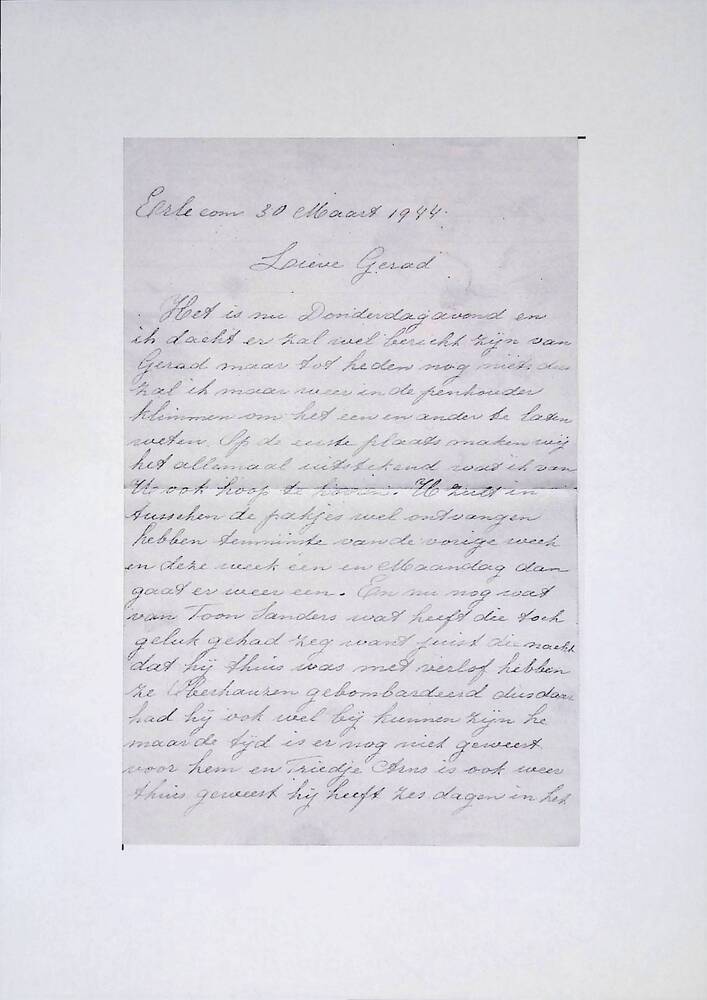 Erlecom 30 Maart 1944.
Lieve Gerad
Het is nu Donderdagavond en
ik dacht er zal wel bericht zijn van
Gerad maar tot heden nog niets dus
zal ik maar weer in de penhouder
klimmen om het een en ander te laten
weten. Op de eerste plaats maken wij
het allemaal uitstekend wat ik van
U ook hoop te horen. U zult in
tusschen de pakjes wel ontvangen
hebben tenminste van de vorige week
en deze week een en Maandag dan
gaat er weer een. En nu nog wat
van Toon Sanders wat heeft die toch
geluk gehad zeg want juist die nacht
dat hij thuis was met verlof hebben
ze Oberhauzen gebombardeerd dus daar
had hij ook wel bij kunnen zijn he
maar de tijd is er nog niet geweest
voor hem en Friedje Arns is ook weer
thuis geweest hij heeft zes dagen in het